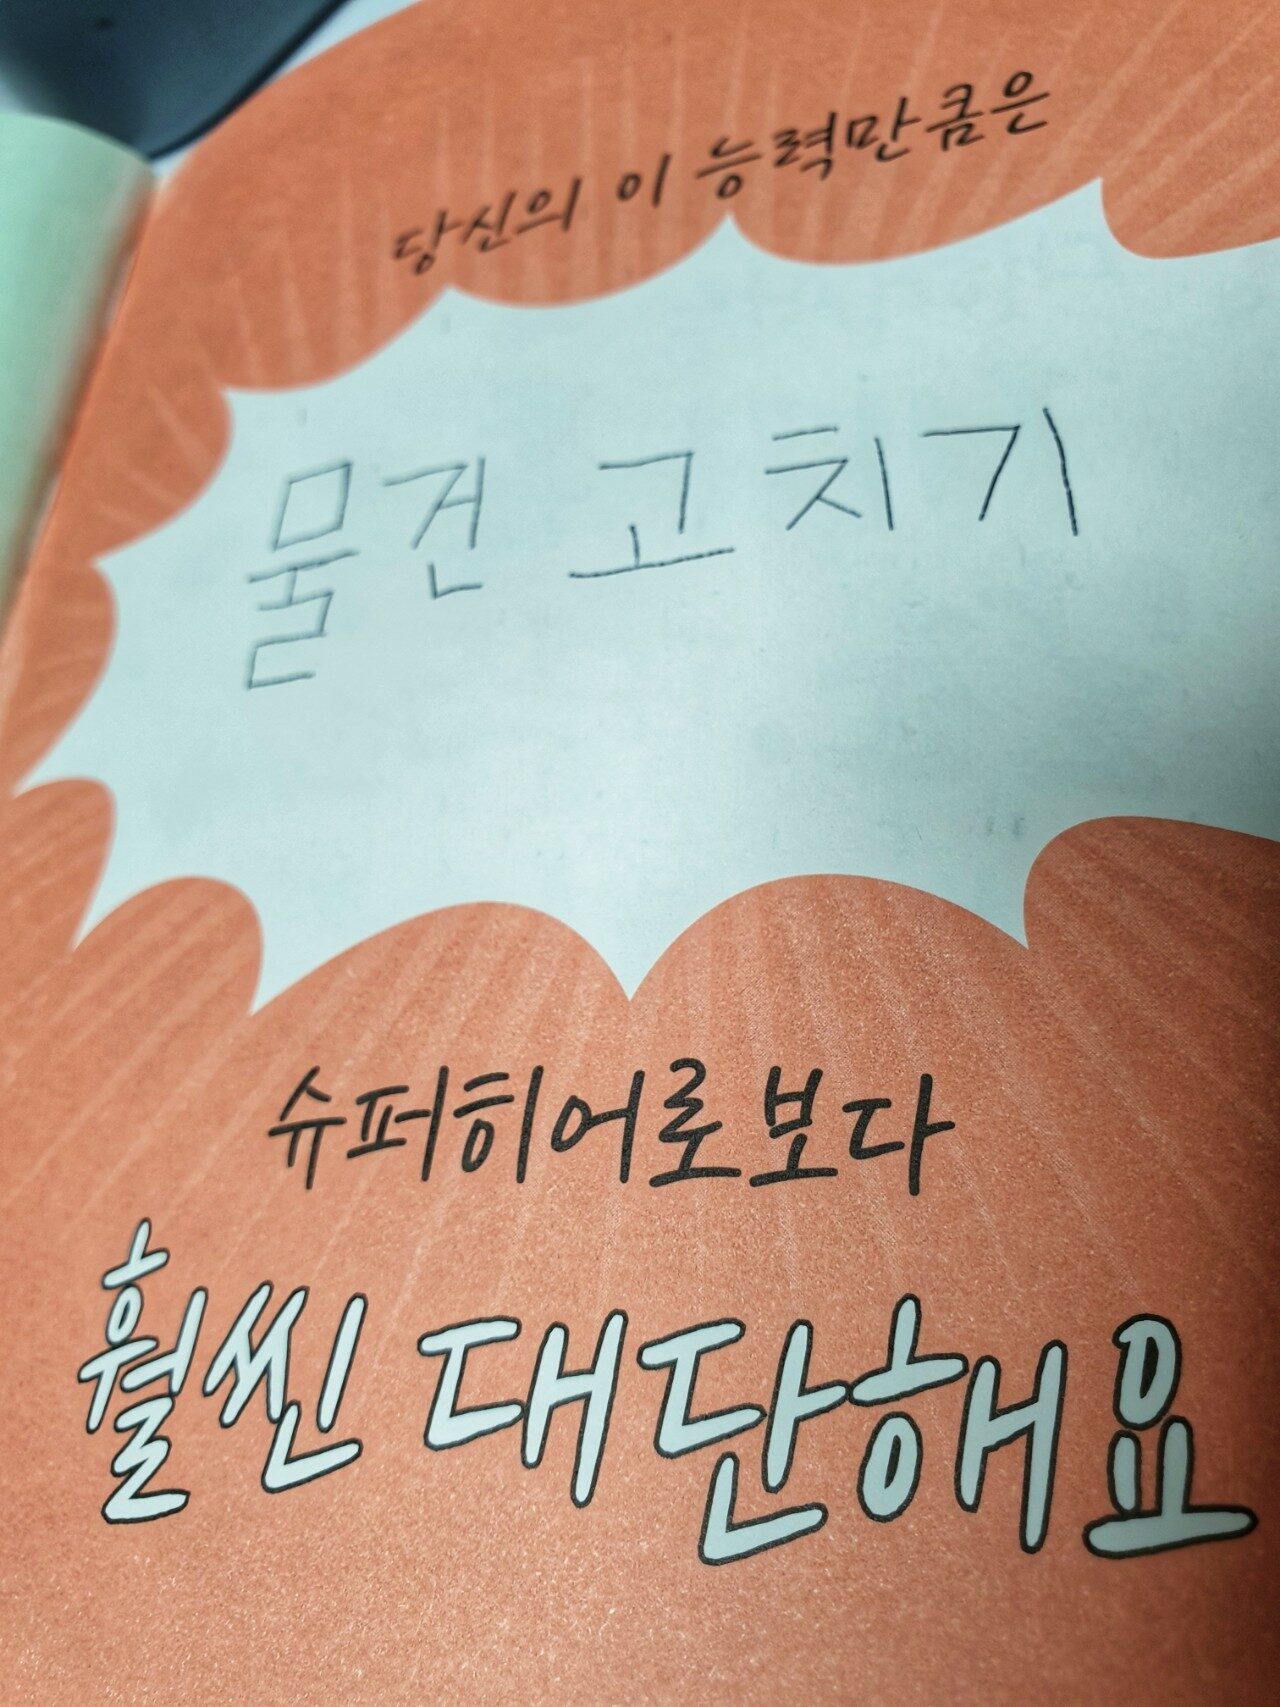 당신의 이 능력만큼은
물건 고치기
슈퍼히어로보다
훨씬 대단해요